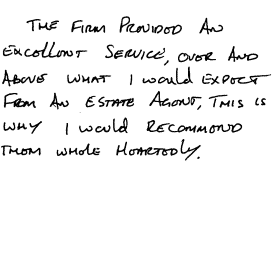 THE FIRM PROVIDED AN
EXCELLENT SERVICE, OVER AND
ABOVE WHAT I WOULD EXPECT
FROM AN ESTATE AGENT, THIS IS
WHY I WOULD RECOMMEND
THEM WHOLE HEARTEDLY.